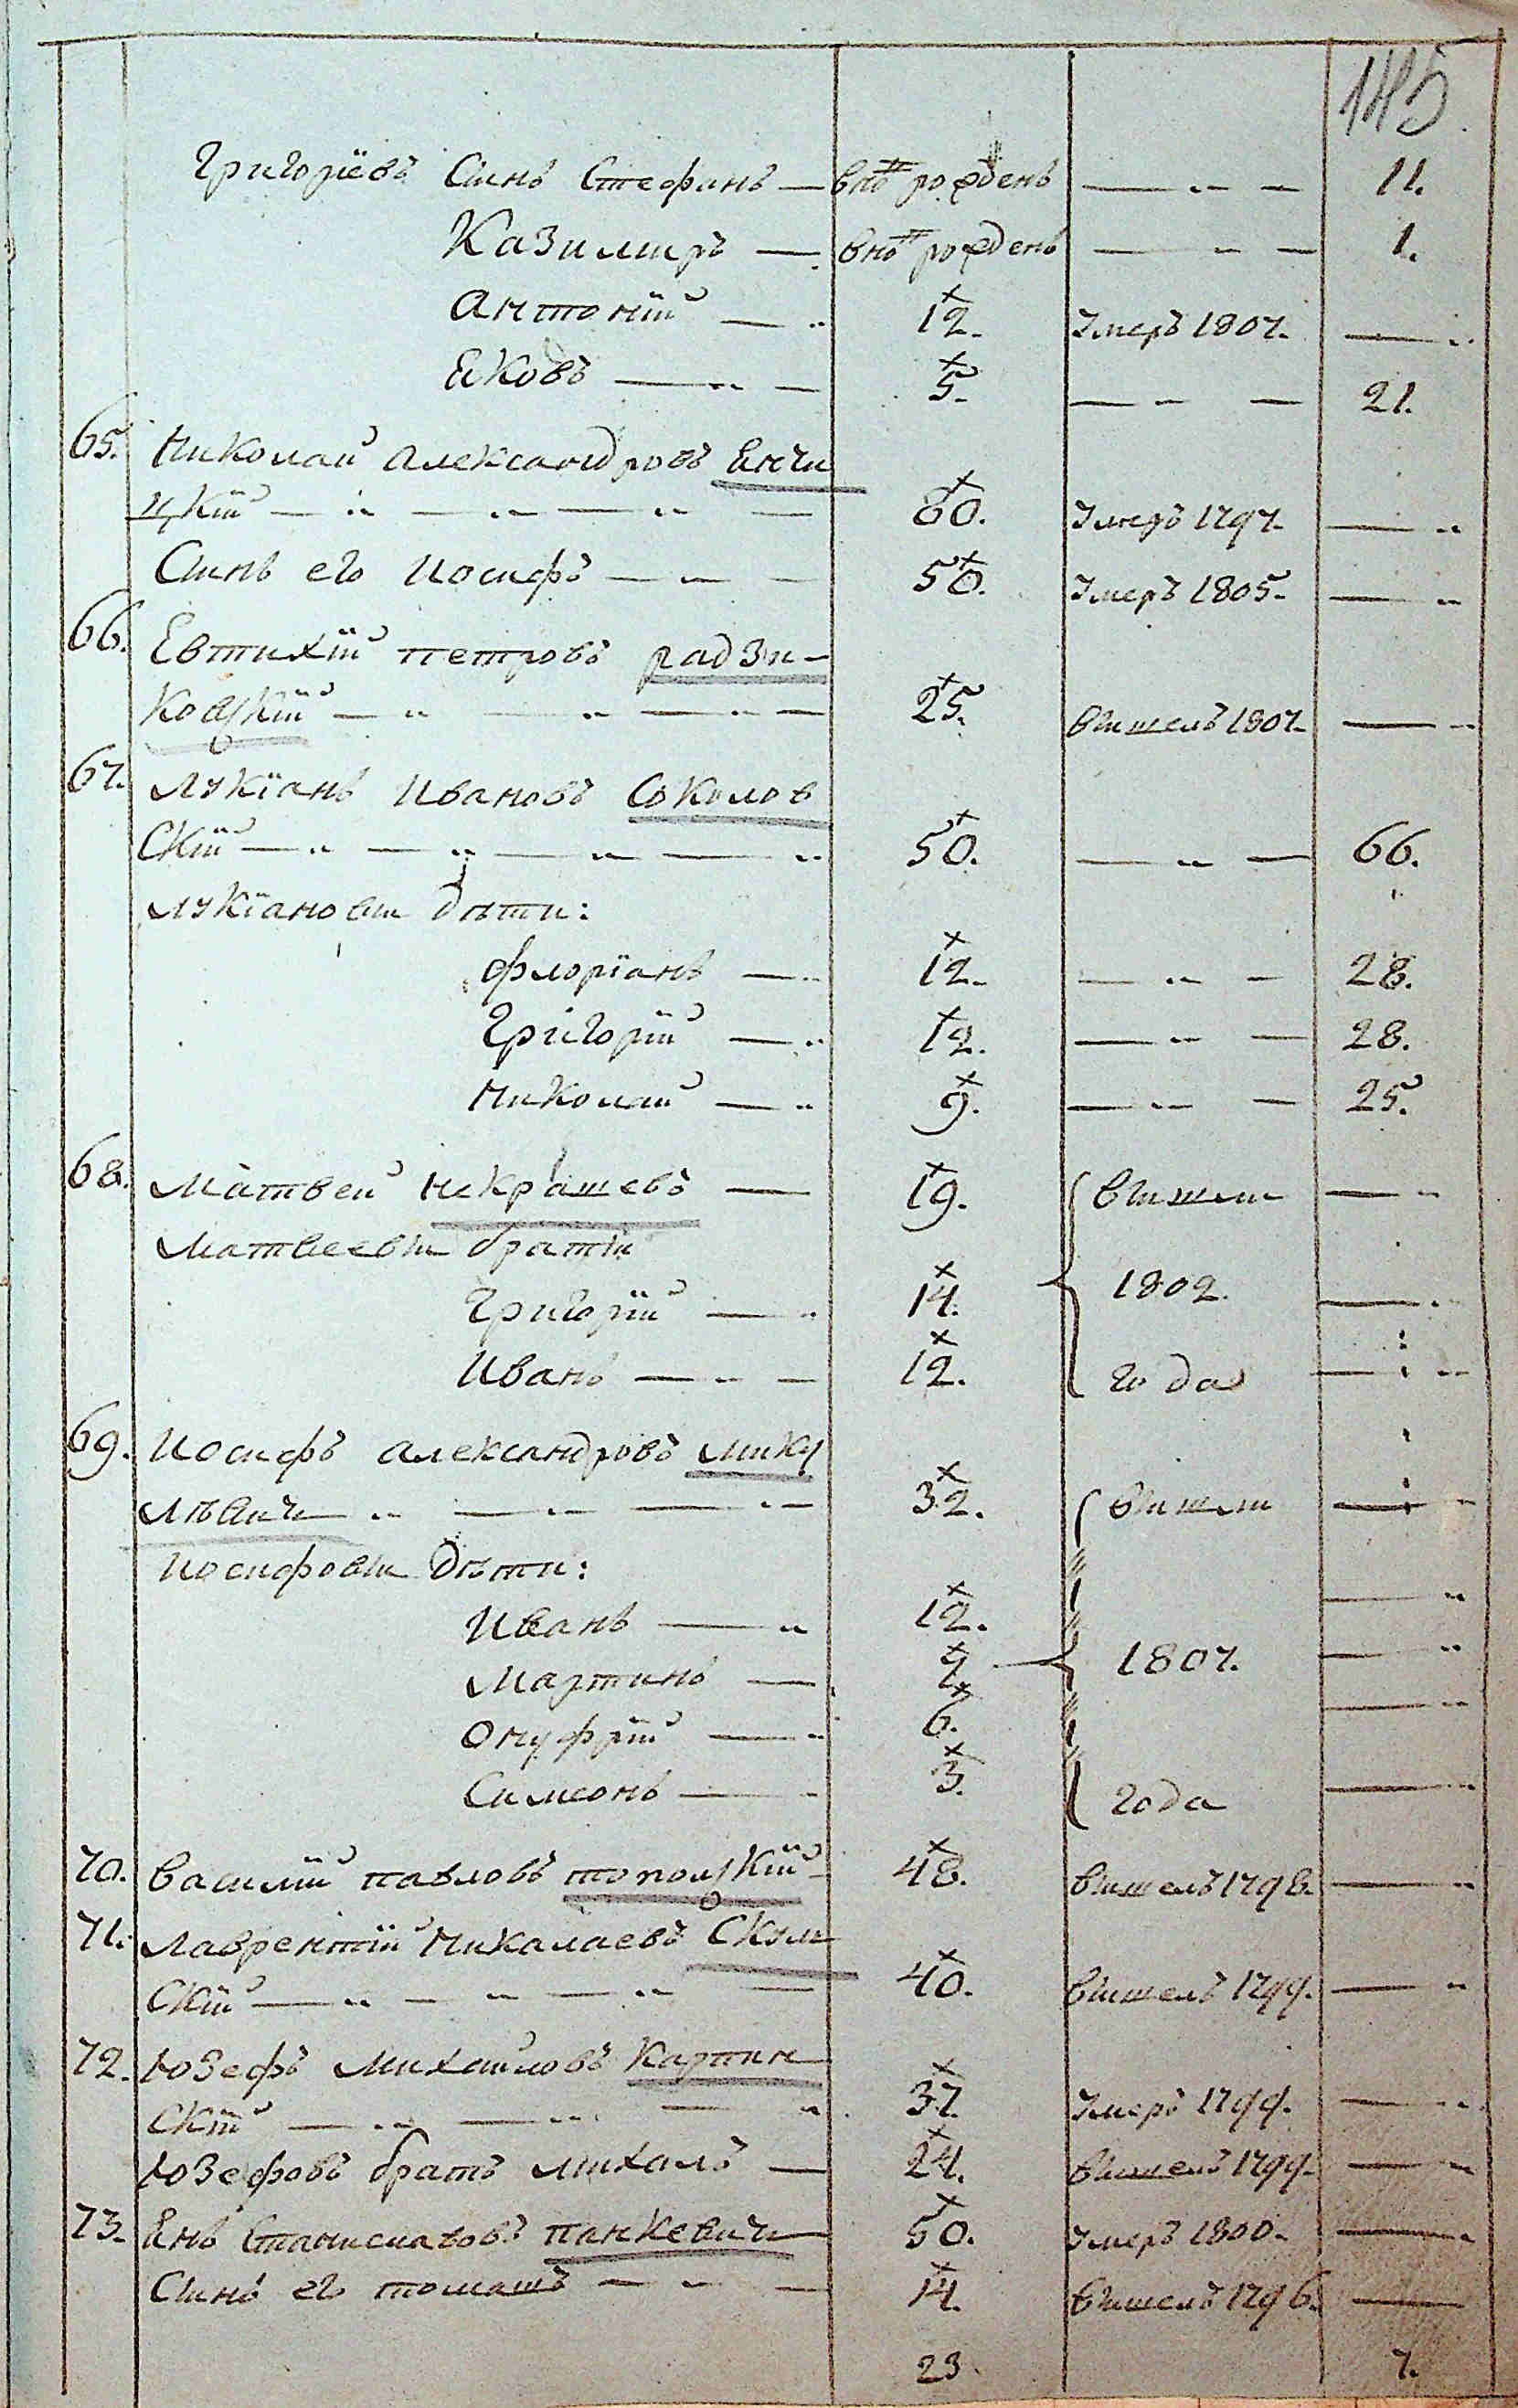 145
Григорїевъ Сынъ Стефанъ — вновь рожденъ — „ — 11.
Казимиръ — вновь рожденъ — „ — 1.
Антонїй — „ 12. Умеръ 1807. — „
Яковъ — „ — 5. — „ — 21.
65. Николай Александровъ Янчи
цкїй — „ — „ — „ — 60. Умеръ 1797. — „
Сынъ его Иосифъ — „ — 50. Умеръ 1805. — „
66. Евтихїй Петровъ Радзи-
ковскїй — „ — „ — „ — 25. Вышелъ 1807. — „
67. Лукїанъ Ивановъ Соколов
скїй — „ — „ — „ — „ 50. — „ — 66.
Лукїановы дѣти:
Флорїанъ — „ 12. — „ — 28.
Григорїй — „ 12. — „ — 28.
Николай — „ 9. — „ — 25.
68. Матвей Некрашевъ — 19. Вышли — „
Матвеевы братья
Григорїй — „ 14. 1802. — „
Иванъ — „ — 12. года — „
69. Иосифъ Александровъ Мику
лѣвичь „ — „ — „ — 32. Вышли — „
Иосифовы дѣти:
Иванъ — „ 12. — „
Мартинъ — 1807. — „
Онуфрїй — „ 6. — „
Симеонъ — „ 3. года — „
70. Василїй Павловъ Топольскїй — 48. Вышелъ 1798. — „
71. Лаврентїй Николаевъ
скїй — „ — „ — „ — 40. Вышелъ 1799. — „
72. Юзефъ Михайловъ Картин
скїй — „ — „ — „ 37. Умеръ 1799. — „
Юзефовъ братъ Михалъ — 24. Вышелъ 1799. — „
73. Янъ Станиславовъ Панкевичь 50. Умеръ 1800. — „
Сынъ его Томашъ — „ — 14. Вышелъ 1796. —
23. 7.